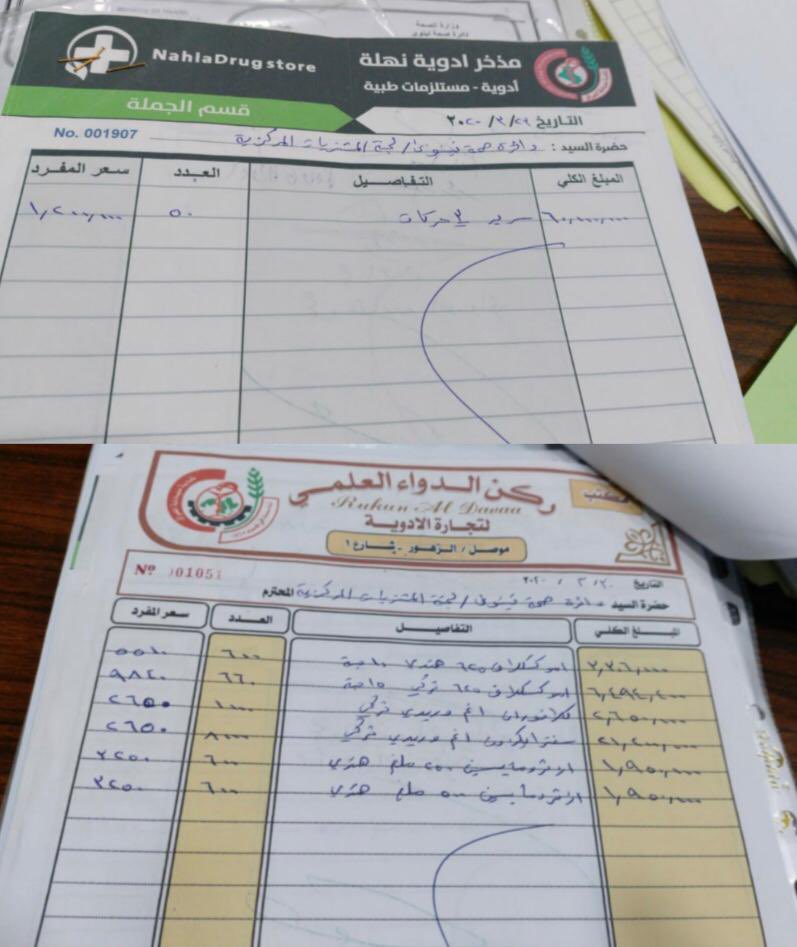 وزارة الصحة
دائرة صحة نينوى
NahlaDrug store
مذخر ادوية نهلة
أدوية - مستلزمات طبية
قسم الجملة
التاريخ ٢٠٢٠/٣/٢٩
No. 001907
حضرة السيد : دائرة صحة نينوى / لجنة المشتريات المركزية
المبلغ الكلي التفاصيل العدد سعر المفرد
٦٠,٠٠٠,٠٠٠ سرير ٤ حركات ٥٠ ١,٢٠٠,٠٠٠
مكتب
ركن الدواء العلمي
Rukun Al Dawaa
لتجارة الادوية
موصل / الزهور - شارع ١
Nº 001051
التاريخ
حضرة السيد دائرة صحة نينوى / لجنة المشتريات المركزية المحترم
المبلغ الكلي التفاصيل العدد سعر المفرد
اموكسكلاف ٦٢٥ هندي ٦٠٠
٦,٤٩٤,٤٠٠ اموكسكلاف ٦٢٥ تركي ٦٦٠ ٩٨٤٠
٢,٦٥٠,٠٠٠ كلافوران ١غم وريدي تركي ١٠٠٠ ٢٦٥٠
٢١,٢٠٠,٠٠٠ سفترياكزون ١غم وريدي تركي ٨٠٠٠ ٢٦٥٠
١,٩٥٠,٠٠٠ ازثرومايسين ٢٥٠ ملغ هندي ٦٠٠ ٣٢٥٠
١,٩٥٠,٠٠٠ ازثرومايسين ٥٠٠ ملغ هندي ٦٠٠ ٣٢٥٠